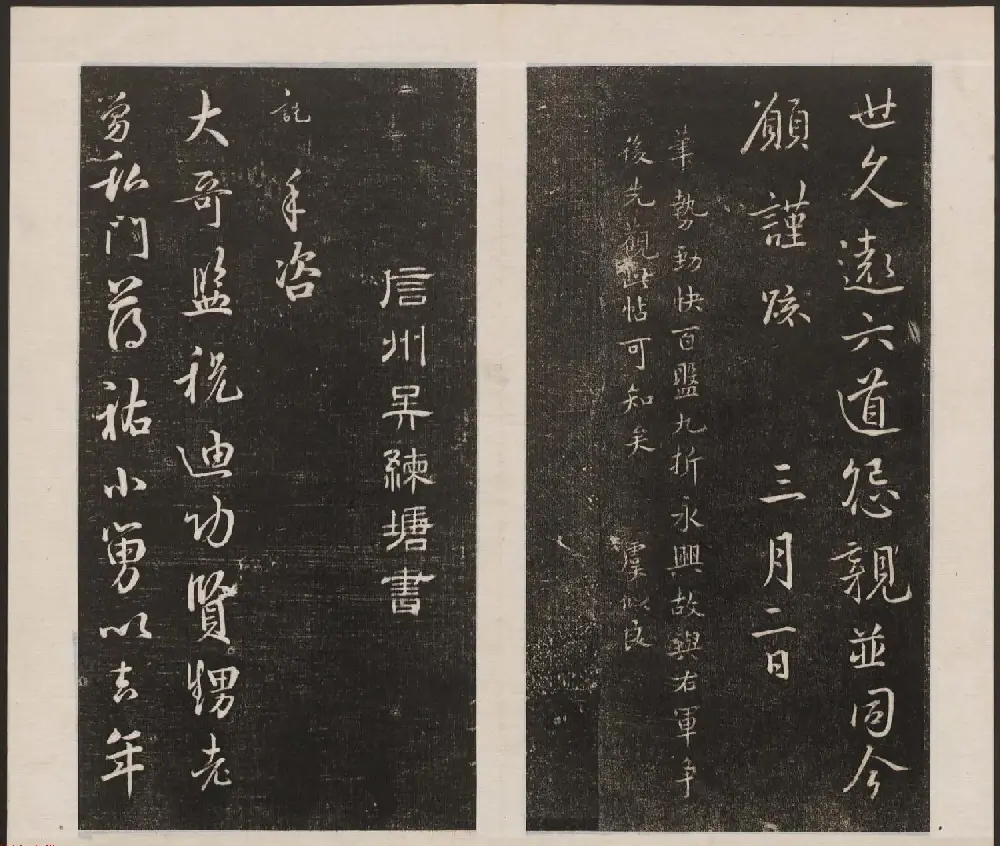 世久遠六道怨親並同今
願謹疏 三月二日
筆勢勁快百盤九折永興故與右軍争
後先觀此帖可知矣 虞似良
信州吳練塘書
説 手咨
大哥監税迪功賢甥老
舅私門荐祐小舅以去年